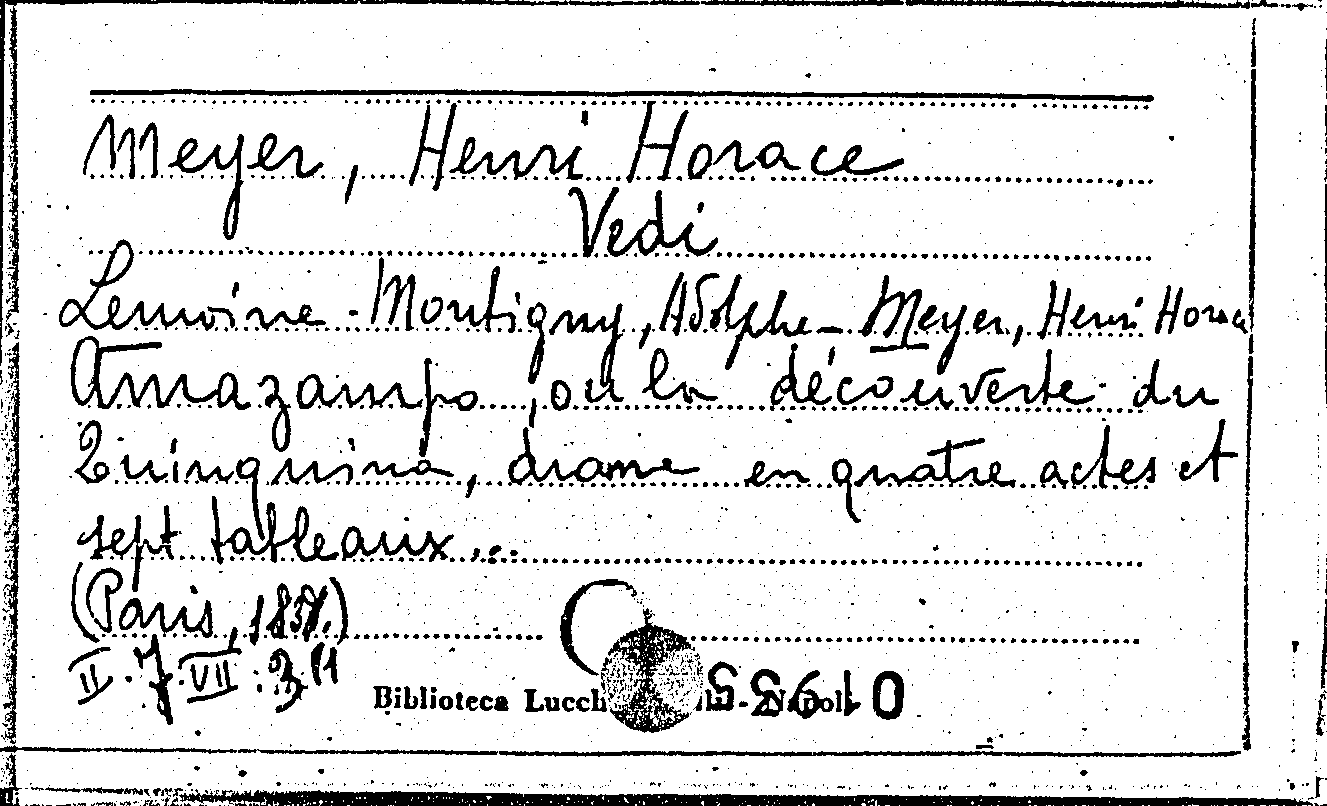 Meyer, Henri Horace
Vedi
Lemoine-Montigny, Adolphe - Meyer, Henri Horace
Amazampo, ou la découverte du
Quinquina, drame en quatre actes et
sept tableaux...
(Paris,
II. 7. VII
Biblioteca Lucch